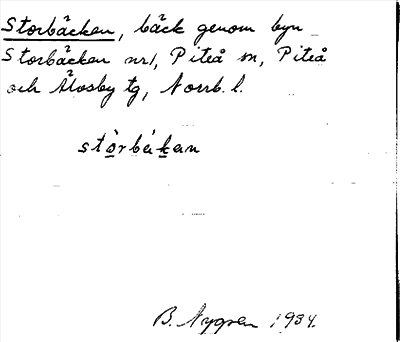 Storbäcken, bäck genom byn
Storbäcken nr1, Piteå sn, Piteå
och Älvsby tg, Norrb. l.
stòrbákan
B. Nygren 1934.